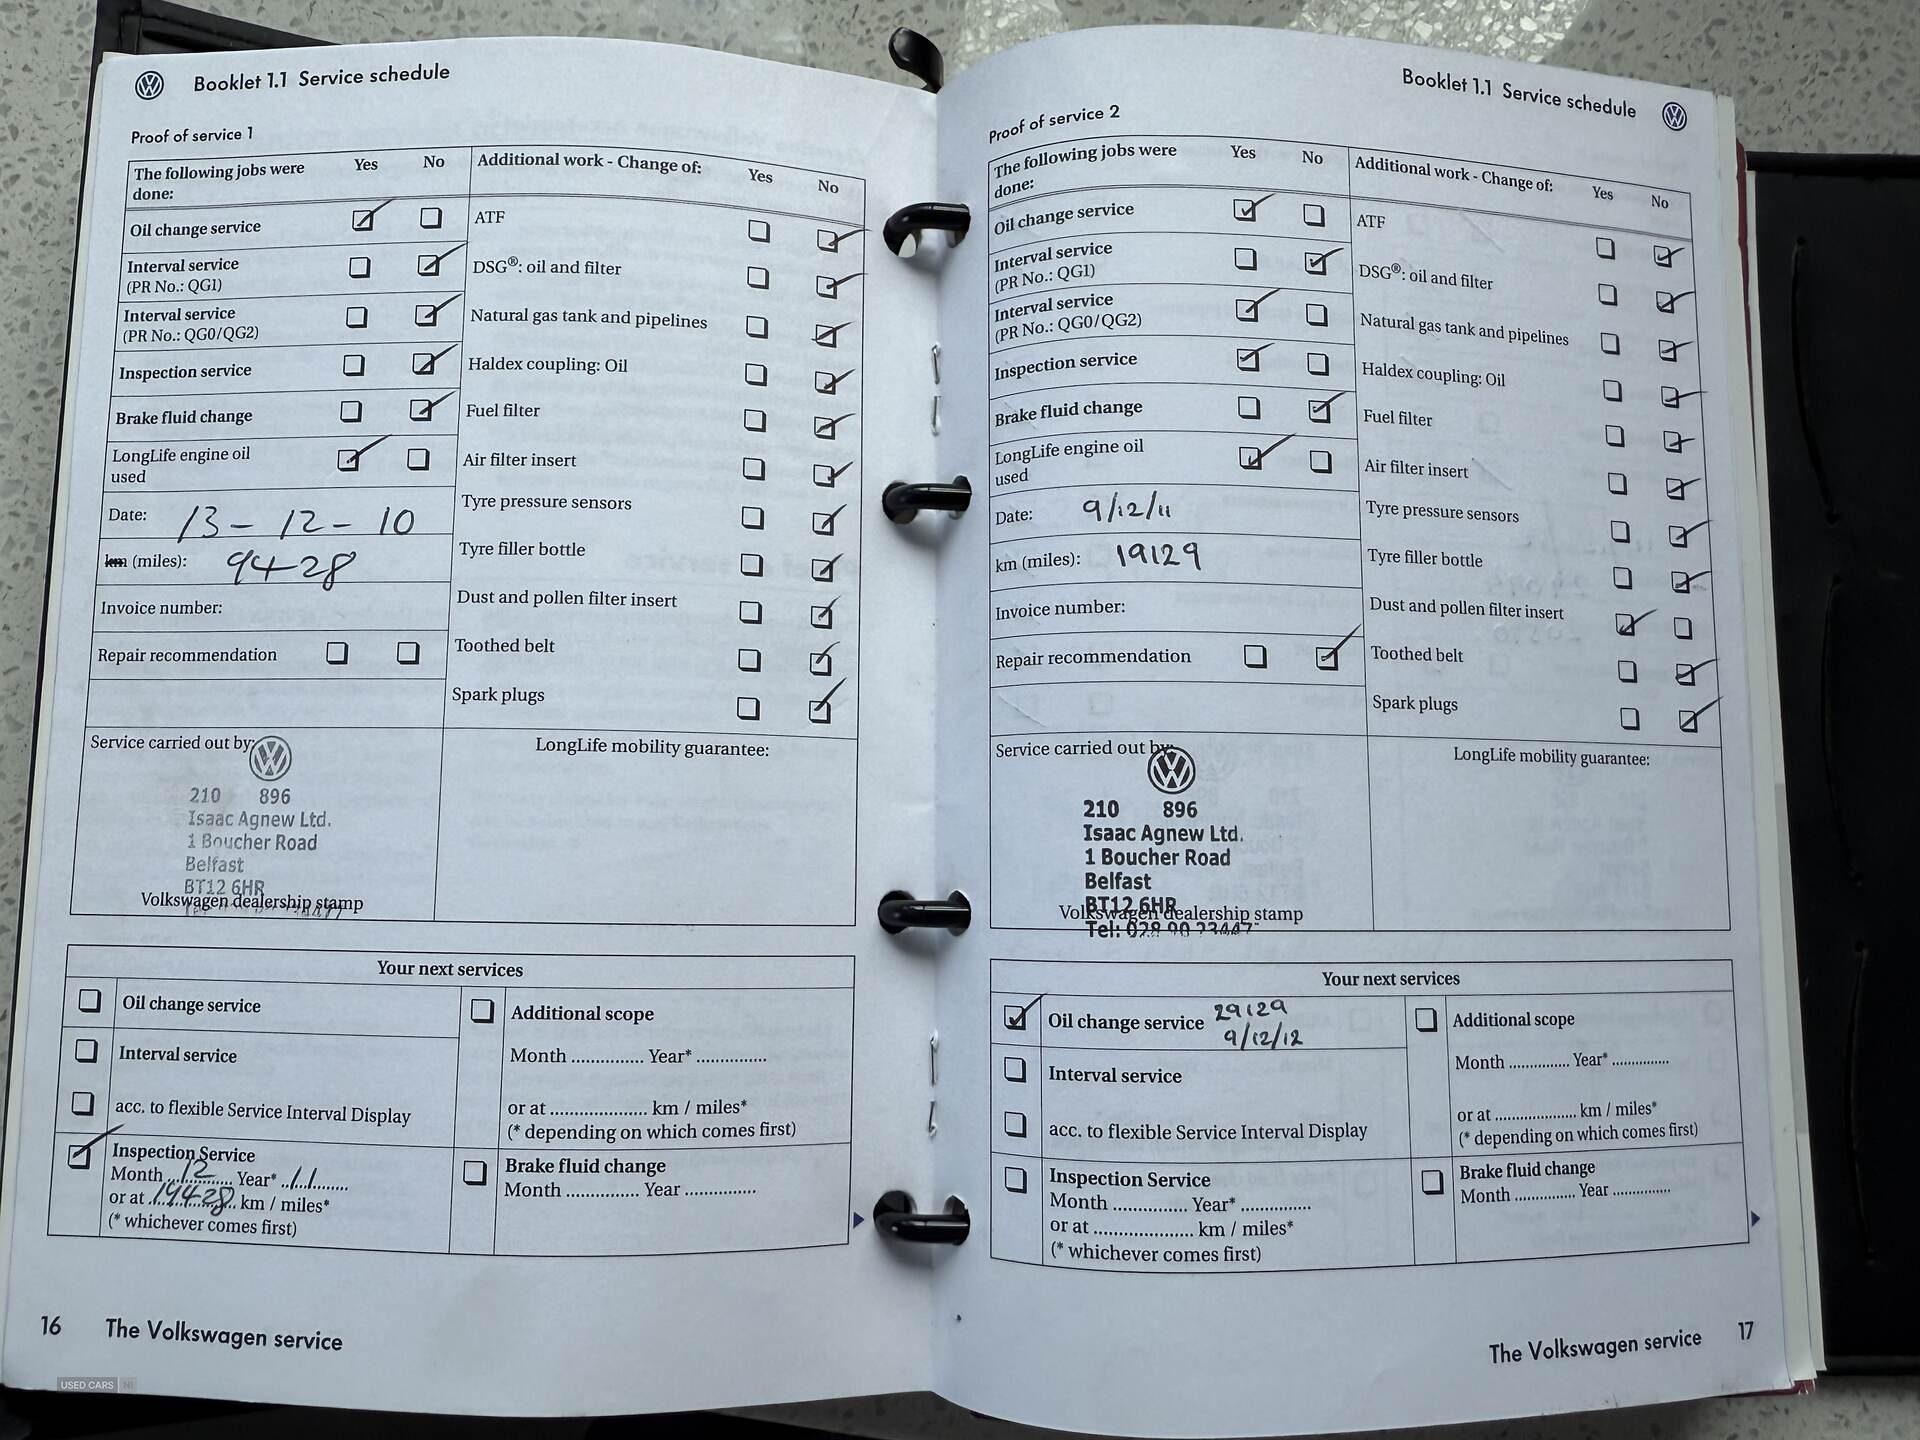 Booklet 1.1 Service schedule
Proof of service 1
The following jobs were done: Yes No
Additional work - Change of: Yes No
Oil change service
ATF
Interval service
(PR No.: QG1)
DSG®: oil and filter
Interval service
(PR No.: QG0/QG2)
Natural gas tank and pipelines
Inspection service
Haldex coupling: Oil
Brake fluid change
Fuel filter
LongLife engine oil
used
Air filter insert
Date: 13 - 12 - 10
Tyre pressure sensors
km (miles): 9428
Tyre filler bottle
Invoice number:
Dust and pollen filter insert
Repair recommendation
Toothed belt
Spark plugs
Service carried out by:
LongLife mobility guarantee:
210 896
Isaac Agnew Ltd.
1 Boucher Road
Belfast
BT12 6HR
Volkswagen dealership stamp
Your next services
Oil change service
Additional scope
Interval service
Month ............... Year* ...............
acc. to flexible Service Interval Display
or at ..................... km / miles*
(* depending on which comes first)
Inspection Service
Month 12 Year* 11
or at 19428 km / miles*
(* whichever comes first)
Brake fluid change
Month ............... Year ...............
16 The Volkswagen service
USED CARS NI
Booklet 1.1 Service schedule
Proof of service 2
The following jobs were done: Yes No
Additional work - Change of: Yes No
Oil change service
ATF
Interval service
(PR No.: QG1)
DSG®: oil and filter
Interval service
(PR No.: QG0/QG2)
Natural gas tank and pipelines
Inspection service
Haldex coupling: Oil
Brake fluid change
Fuel filter
LongLife engine oil
used
Air filter insert
Date: 9/12/11
Tyre pressure sensors
km (miles): 19129
Tyre filler bottle
Invoice number:
Dust and pollen filter insert
Repair recommendation
Toothed belt
Spark plugs
Service carried out by:
LongLife mobility guarantee:
210 896
Isaac Agnew Ltd.
1 Boucher Road
Belfast
BT12 6HR
Volkswagen dealership stamp
Tel: 028 90 23447
Your next services
Oil change service 29129
9/12/12
Additional scope
Interval service
Month ............... Year* ...............
acc. to flexible Service Interval Display
or at ..................... km / miles*
(* depending on which comes first)
Inspection Service
Month ............... Year* ...............
or at ..................... km / miles*
(* whichever comes first)
Brake fluid change
Month ............... Year ...............
The Volkswagen service 17